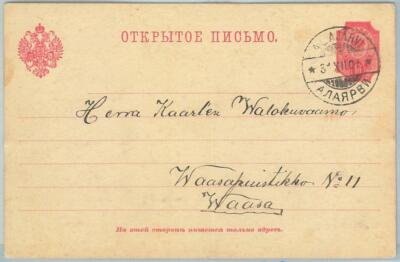 ОТКРЫТОЕ ПИСЬМО.
ALAJÄRVI
31 XII 01
АЛАЯРВИ
Herra Kaarlen Walokuvaamo,
Waasapuistikko No 11
Waasa
На этой сторонѣ пишется только адресъ.